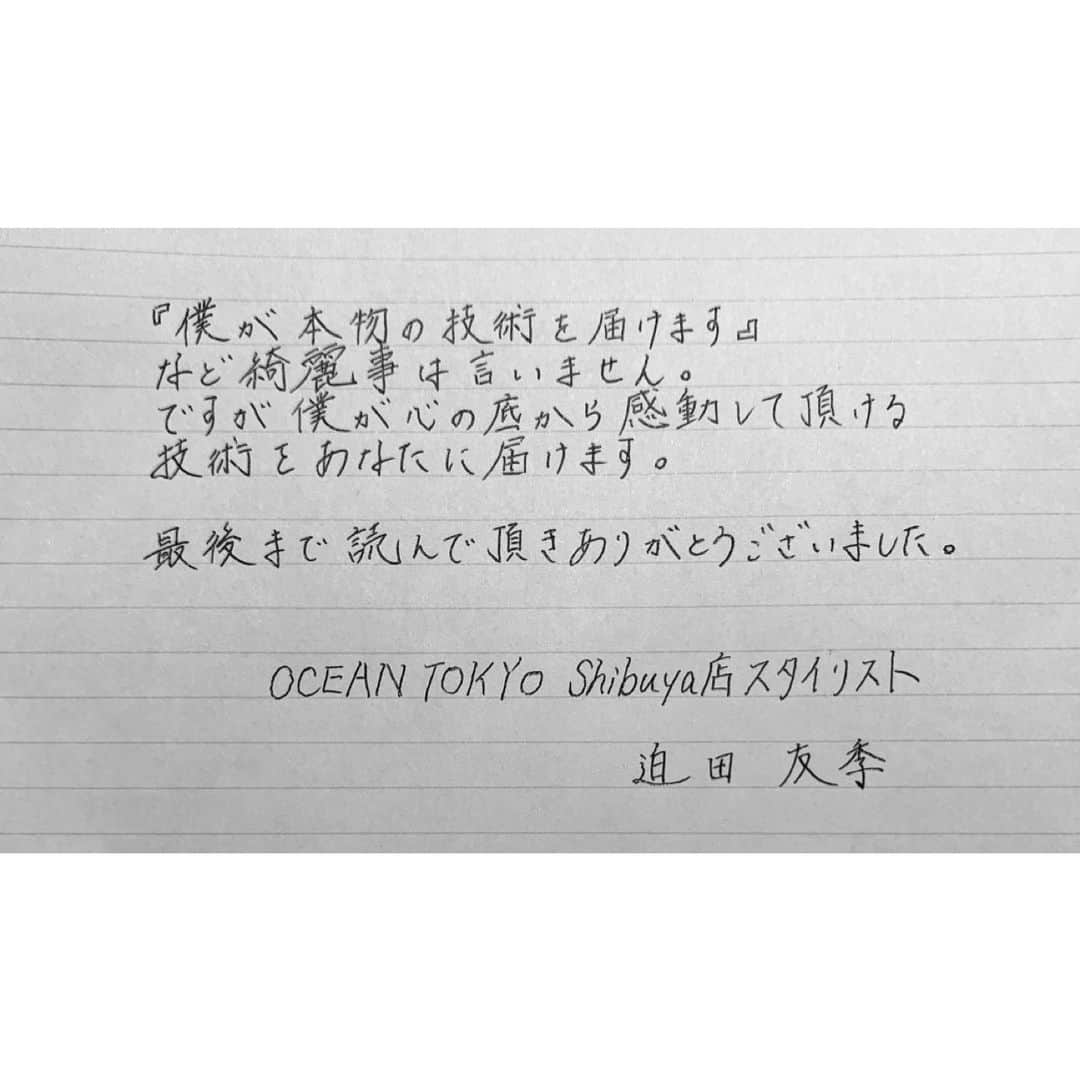 『僕が本物の技術を届けます』
など綺麗事は言いません。
ですが僕が心の底から感動して頂ける
技術をあなたに届けます。
最後まで読んで頂きありがとうございました。
OCEAN TOKYO Shibuya店スタイリスト
迫田 友季